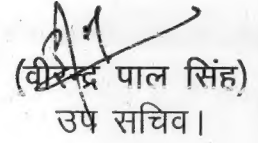 (वीरेन्द्र पाल सिंह)
उप सचिव।